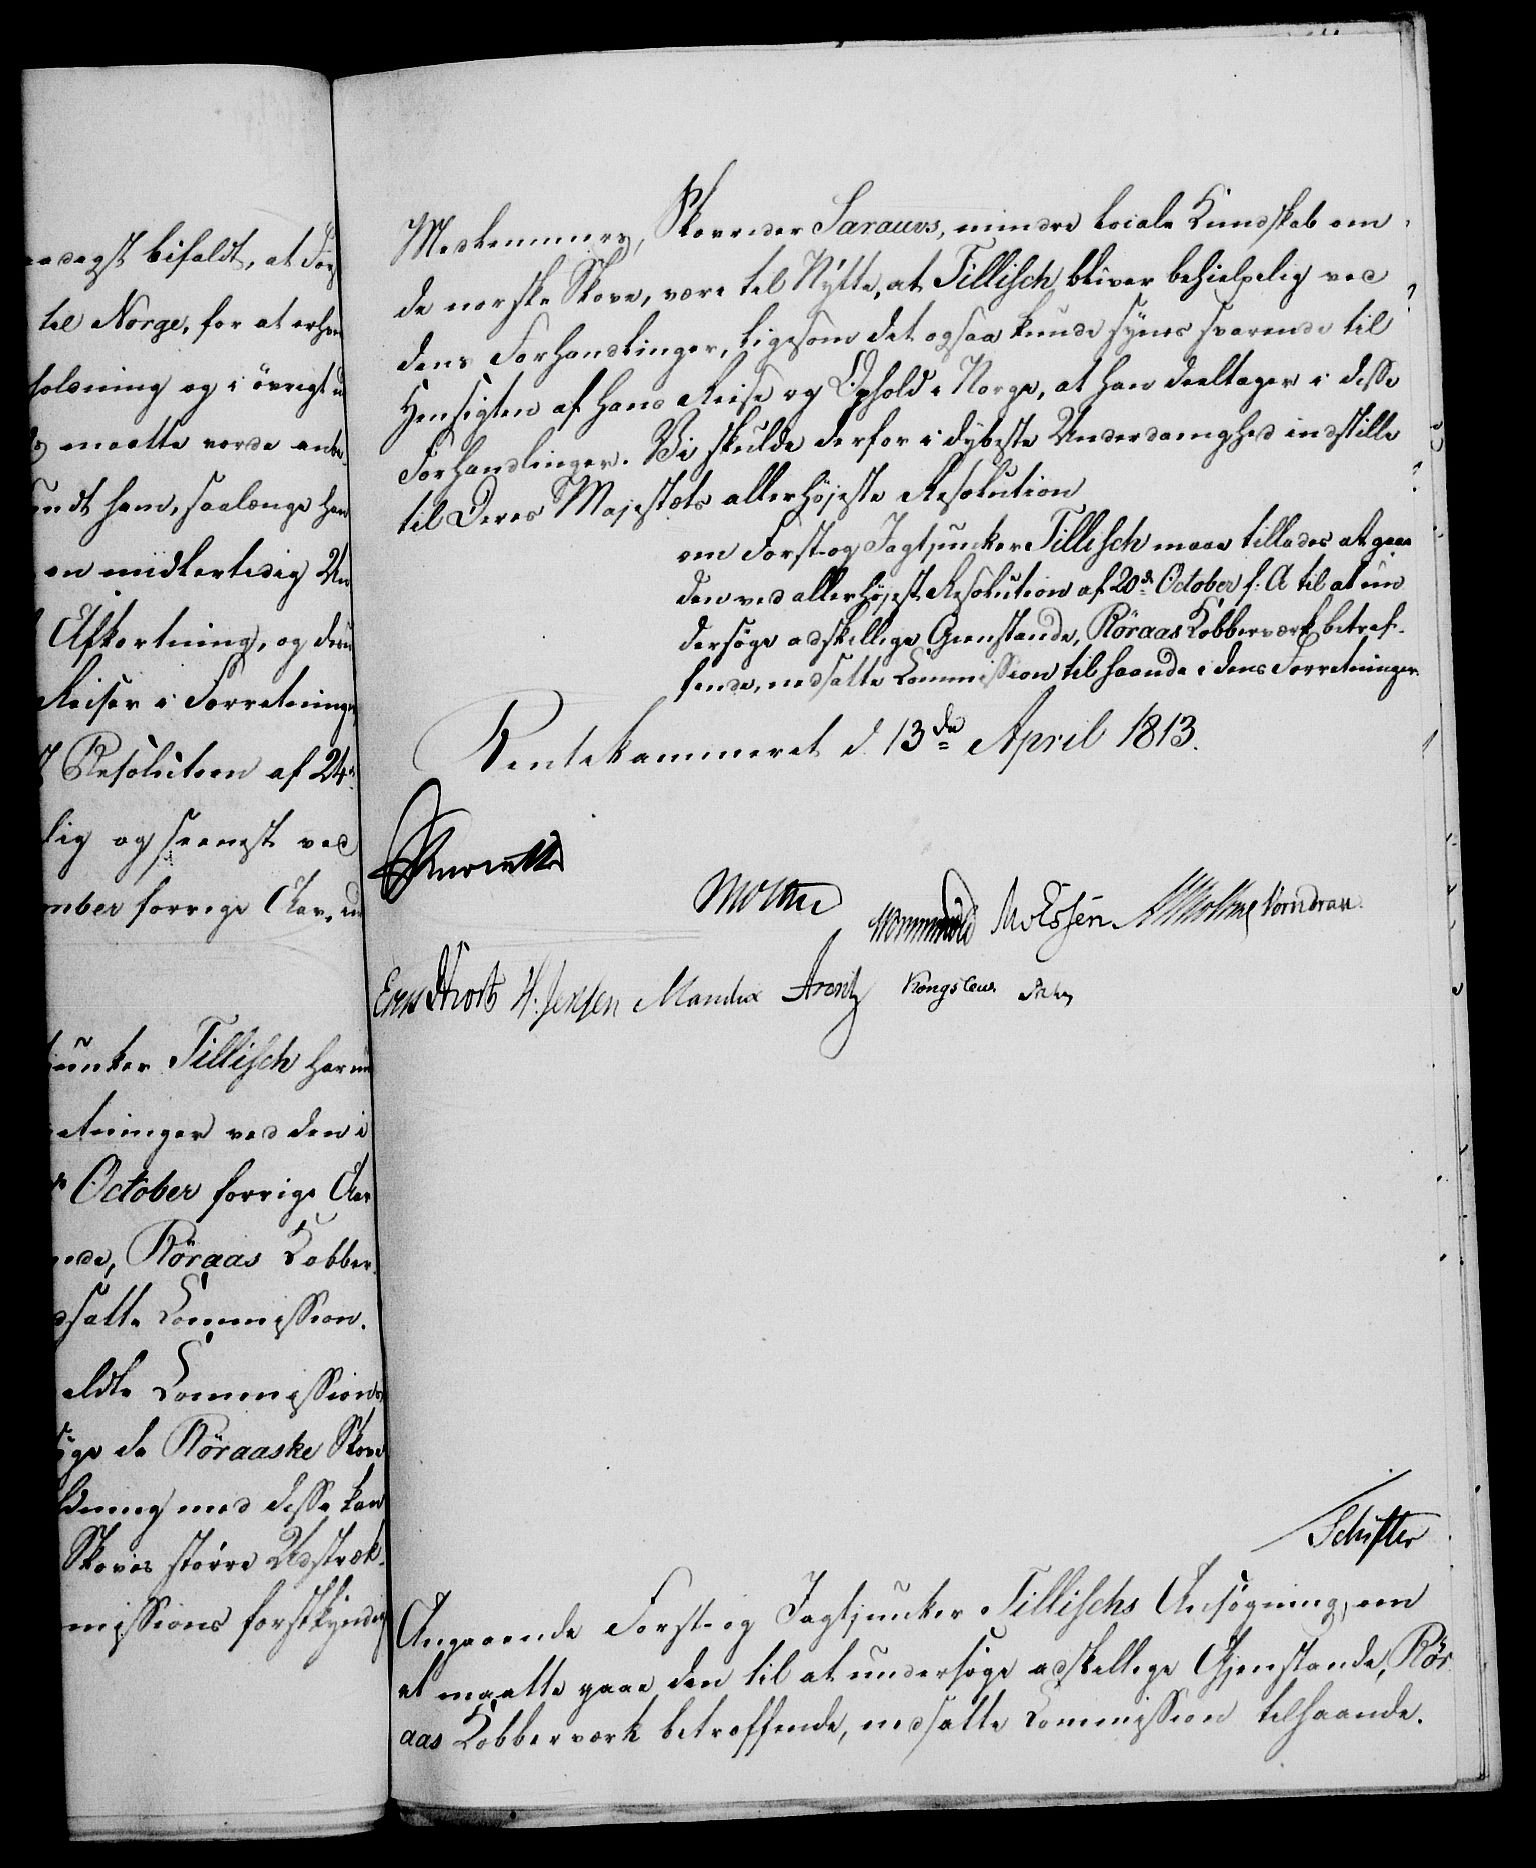 adagst bifaldt, at For
til Norge, for at erhv
holdning og i övrigt
maatte vorde anbe
endt ham, saalænge han
en midlertidig Un
Afkortning, og des
Reiser i Forretninge
Resolution af 24de
lig og seenest ved
mber forrige Aar, un
junker Tillisch har nu
retninger ved den i
October forrige Aar
ende, Röraas Kobber
dsatte Commission.
eldte Commissions
öge de Röraaske Skove
dning med disse kan
Skoves större Udstræk-
missions forstkyndig
Medlemmers, Skovrider Sarauvs, mindre locale Kundskab om
de norske Skove, være til Nÿtte, at Tillisch bliver behielpelig ved
dens Forhandlinger, ligesom det ogsaa kunde synes svarende til
Hensigten af hans Reise og Ophold i Norge, at han deeltager i disse
Forhandlinger. Vi skulde derfor i dybeste Underdanighed indstille
til Deres Majestæts allerhöjeste Resolution
om Forst- og Jagtjunker Tillisch maae tillades at gaae
den ved allerhöjest Resolution af 20de October f: A til at un
dersöge adskillige Gienstande, Röraas Kobberværk betref-
fende, nedsatte Commission tilhaande i dens Forretninger
Rentekammeret d. 13de April 1813.
Moltke
Wormskiold M Essen Vorndran
H. Jensen Manthe Arentz Kongslew
Schifter
Angaaende Forst- og Jagtjunker Tillischs Ansögning, om
at maatte gaae den til at undersöge adskillige Gjenstande, Rör
aas Kobberværk betreffende, nedsatte Commission tilhaande.